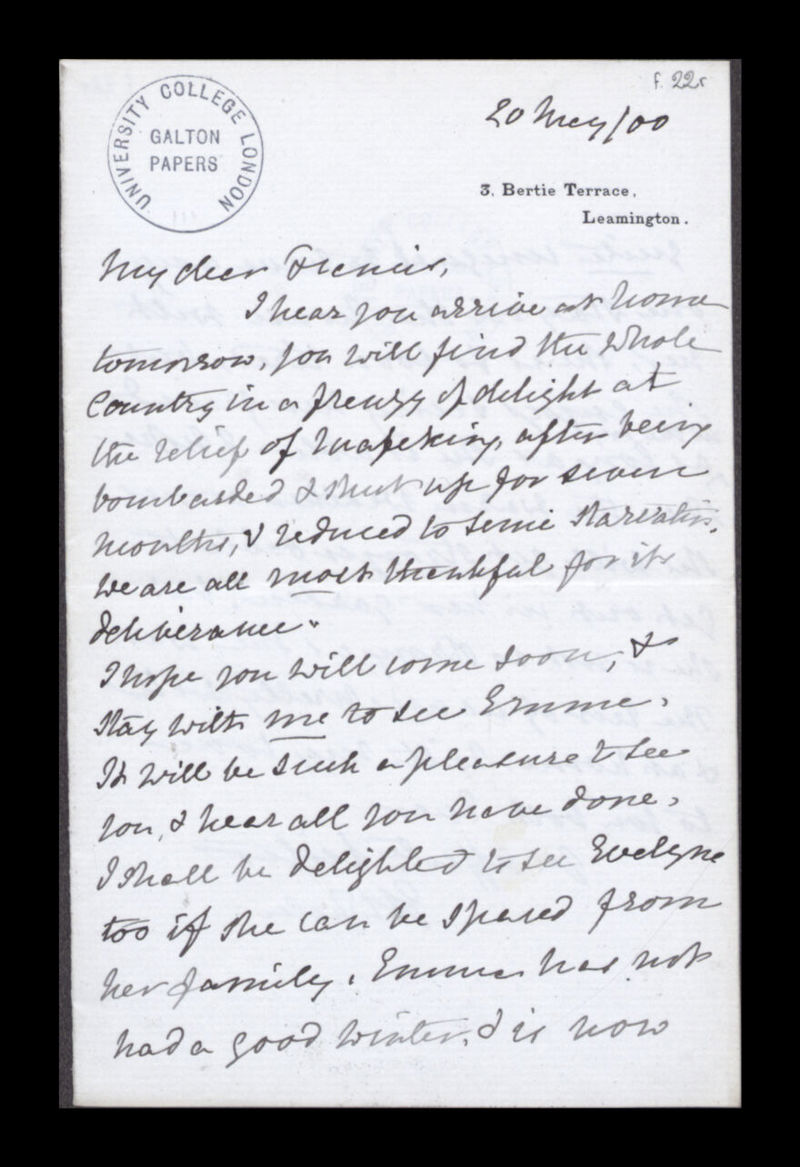 f. 22r
UNIVERSITY COLLEGE LONDON
GALTON
PAPERS
20 May/00
3, Bertie Terrace,
Leamington.
My dear Francis,
I hear you arrive at home
tomorrow, you will find the whole
Country in a frenzy of delight at
the relief of Mafeking, after being
bombarded & shut up for seven
months, & reduced to semi starvation.
We are all most thankful for its
deliverance.
I hope you will come soon, &
stay with me to see Emma.
It will be such a pleasure to see
you, & hear all you have done.
I shall be delighted to see Evelyne
too if she can be spared from
her family. Emma has not
had a good winter, & is now